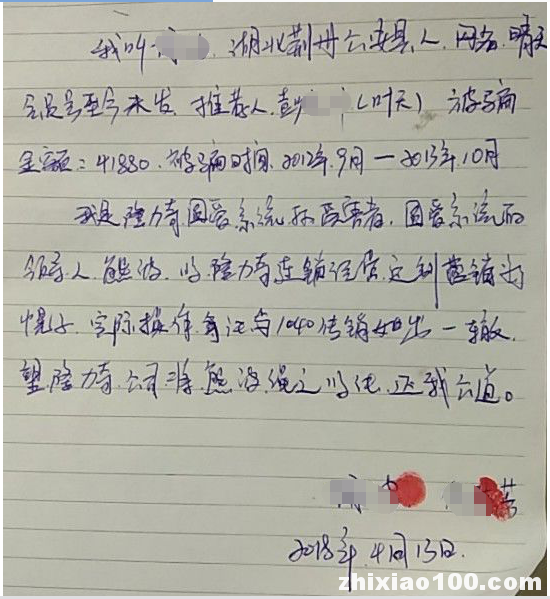 我叫 湖北荆州公安县人，网名：晴天
会员号至今未发，推荐人，彭 （叶天）被骗
金额：41880，被骗时间，2012年9月—2013年10月
我是隆力奇圆爱系统的受害者，圆爱系统的
领导人熊波，以隆力奇连锁经营 营销为
幌子，实际操作 与1040传销如出一辙，
望隆力奇公司将熊波绳之以法，还我公道。
2018年4月13日
zhixiao100.com